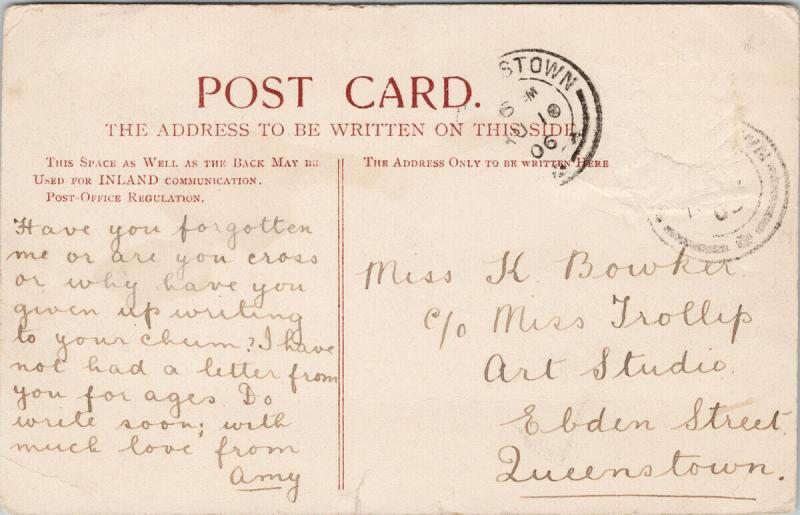 POST CARD.
THE ADDRESS TO BE WRITTEN ON THIS SIDE
THIS SPACE AS WELL AS THE BACK MAY BE
USED FOR INLAND COMMUNICATION.
POST-OFFICE REGULATION.
THE ADDRESS ONLY TO BE WRITTEN HERE
STOWN
06
Have you forgotten
me or are you cross
or why have you
given up writing
to your chum? I have
not had a letter from
you for ages. Do
write soon; with
much love from
Amy
Miss K. Bowker.
c/o Miss Trollip
Art Studio.
Ebden Street.
Queenstown.